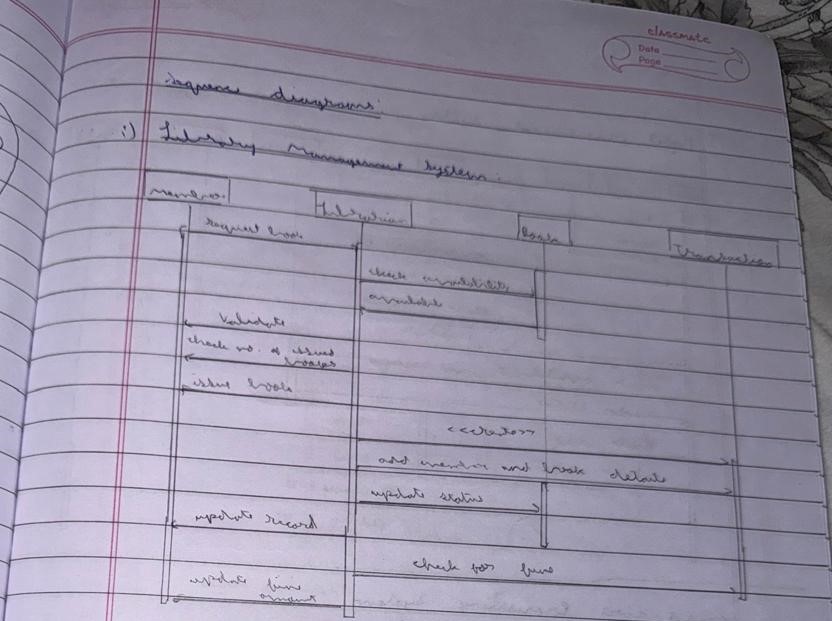 classmate
Date
Page
Sequence diagrams:
i) Library Management System.
Member
Librarian
Book
Transaction
request book
check availability
available
Validate
check no. of issued
books
issue book
<<create>>
add member and book details
update status
update record
check for fine
update fine
amount